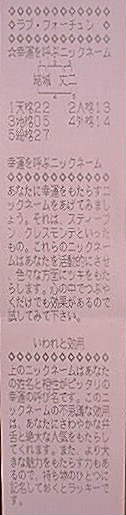 ラブ・フォーチュン
☆幸運を呼ぶニックネーム
結城 丈二
1天格22 2人格13
3地格05 4外格14
5総格27
幸運を呼ぶニックネーム
あなたに幸運をもたらすニッ
クネームをあげてみましょ
う。それは、スティーブ
ン、クレスモンテといった
もの。これらのニックネー
ムはあなたを活動的にさせ
、色々な方面にツキをもた
らします。心の中でつぶや
くだけでも効果があるので
試してみて下さい。
いわれと効用
上のニックネームはあなた
の姓名と相性がピッタリの
幸運の呼び名です。このニ
ックネームの不思議な効用
は、あなたにさわやかな弁
舌と絶大な人気をもたらし
てくれます。また、より大
きな魅力をもたらす力もあ
るので、持ち物のひとつに
記名しておくとラッキーで
す。